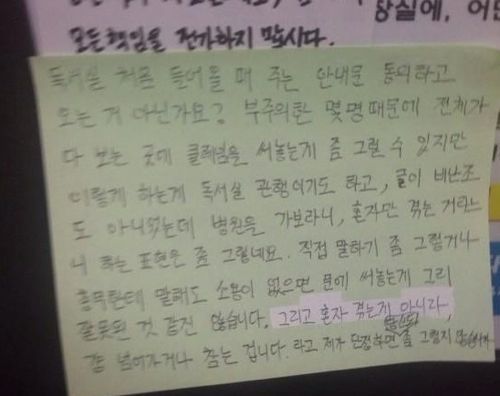 모든책임을 전가하지 맙시다.
황실에, 어떤
독서실 처음 들어올 때 주는 안내문 동의하고
오는 거 아닌가요? 부주의한 몇명때문에 전체가
다 보는 곳에 클레임을 써놓는게 좀 그럴 수 있지만
이렇게 하는게 독서실 관행이기도 하고, 글이 비난조
도 아니었는데 병원을 가보라니, 혼자만 겪는 거라느
니 하는 표현은 좀 그렇네요. 직접 말하기 좀 그렇거나
총무한테 말해도 소용이 없으면 문에 써놓는게 그리
잘못된 것 같진 않습니다. 그리고 혼자 겪는게 아니라,
걍 넘어가거나 참는 겁니다. 라고 제가 단정하면 좀 그렇지 않습니까